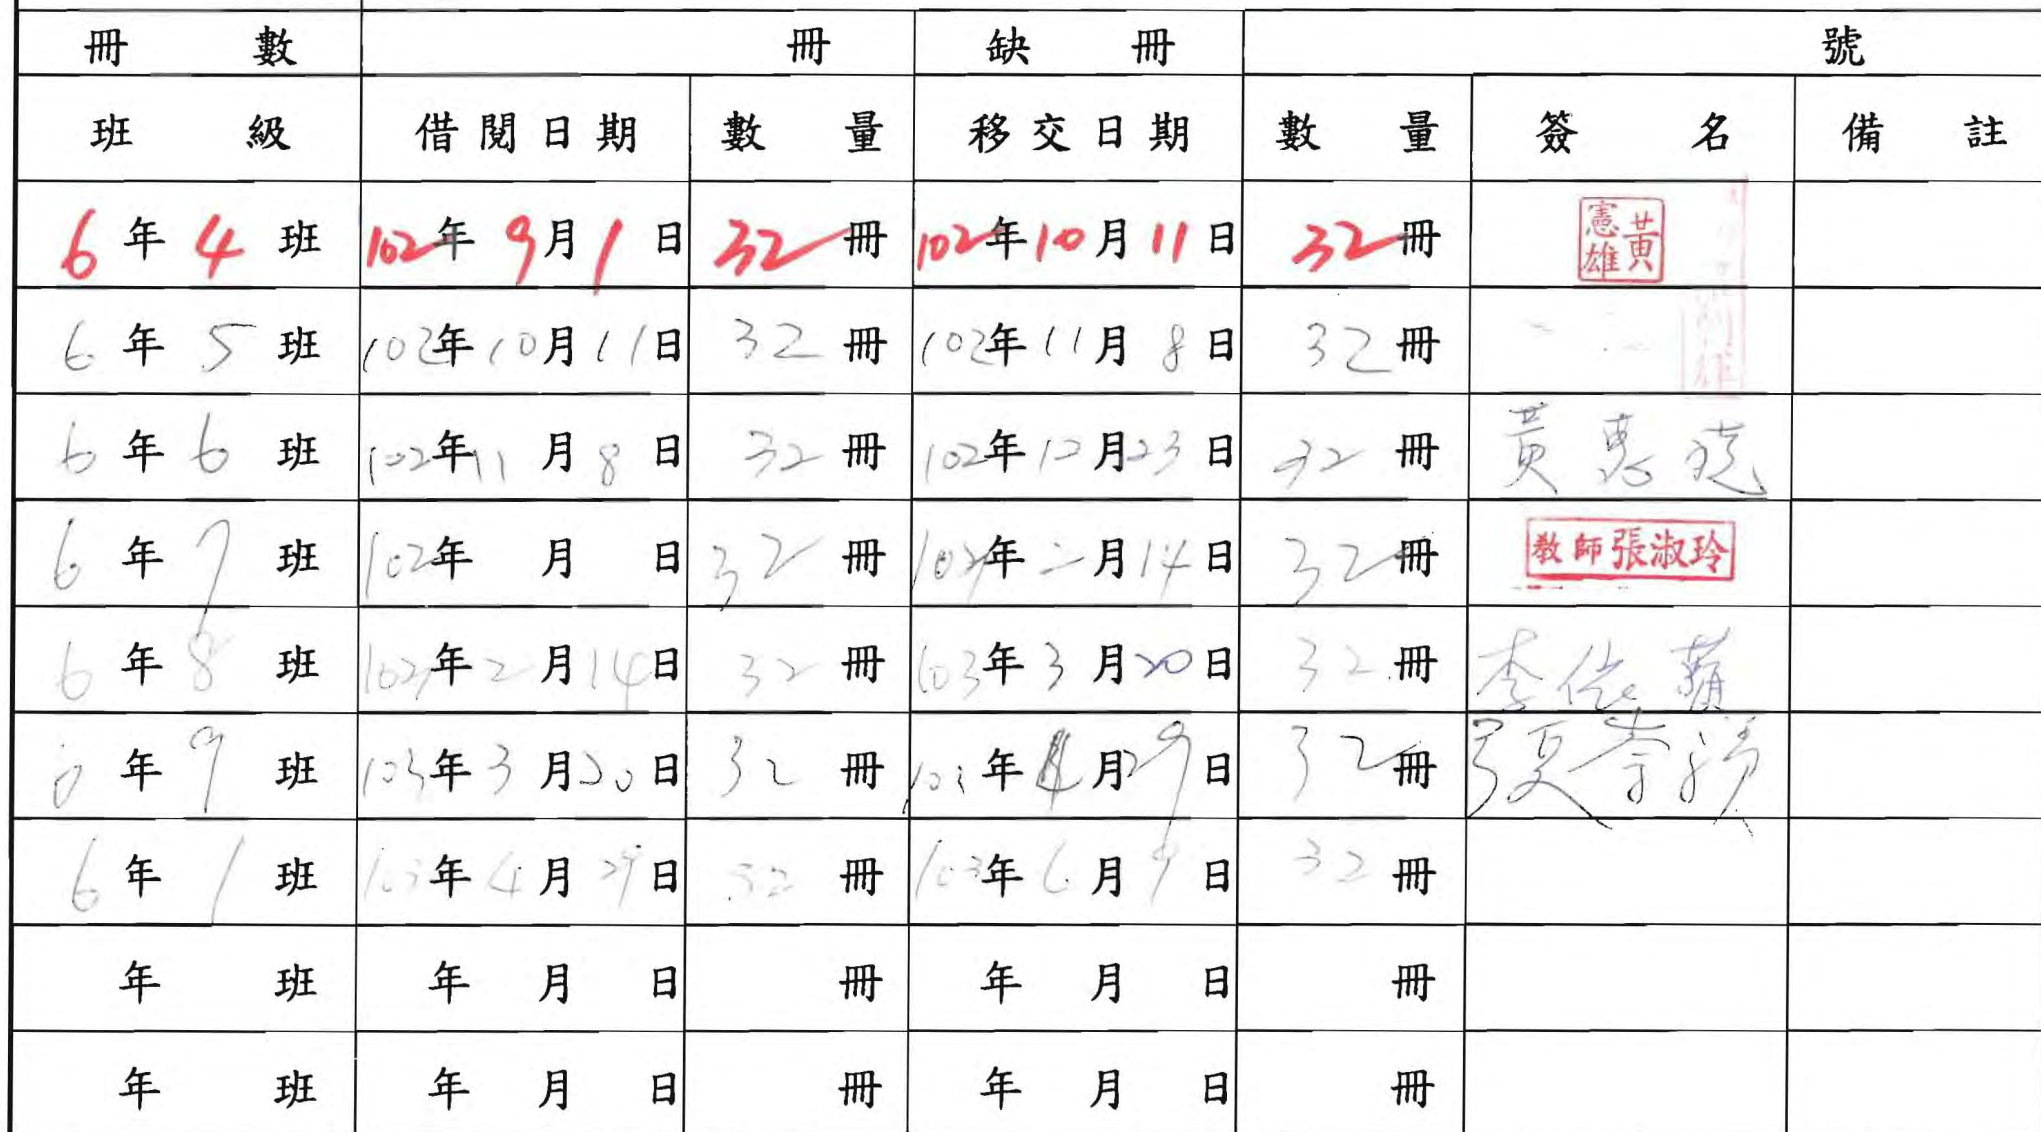 冊數 冊 缺冊 號
班級 借閱日期 數量 移交日期 數量 簽名 備註
6年4班 102年9月1日 32冊 102年10月11日 32冊 黃憲雄
6年5班 102年10月11日 32冊 102年11月8日 32冊
6年6班 102年11月8日 32冊 102年12月23日 32冊 黃惠
6年7班 102年 月 日 32冊 102年二月14日 32冊 教師張淑玲
6年8班 102年2月14日 32冊 103年3月20日 32冊 李依
年9班 103年3月20日 32冊 103年4月29日 32冊
6年1班 103年4月29日 32冊 103年6月9日 32冊
年 班 年 月 日 冊 年 月 日 冊
年 班 年 月 日 冊 年 月 日 冊